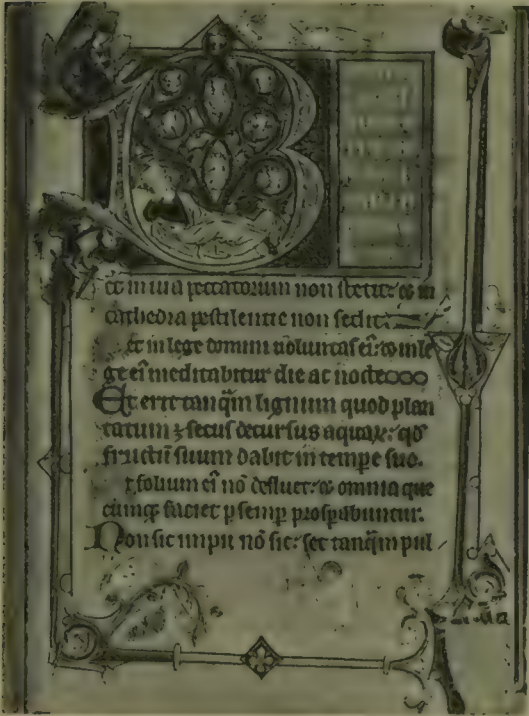 B
et in uia peccatorum non stetit: et in
cathedra pestilentie non sedit:
Et in lege domini uoluntas ei': et in le
ge ei' meditabitur die ac nocte
Et erit tanq̃m lignum quod plan
tatum ÷ secus decursus aquaꝝ: qđ
fructũ suum dabit in tempe suo.
Et folium ei' nõ defluet: et omnia que
cũnqꝫ faciet ꝑ semp prosꝑabuntur.
Non sic impii nõ sic: set tanq̃m pul